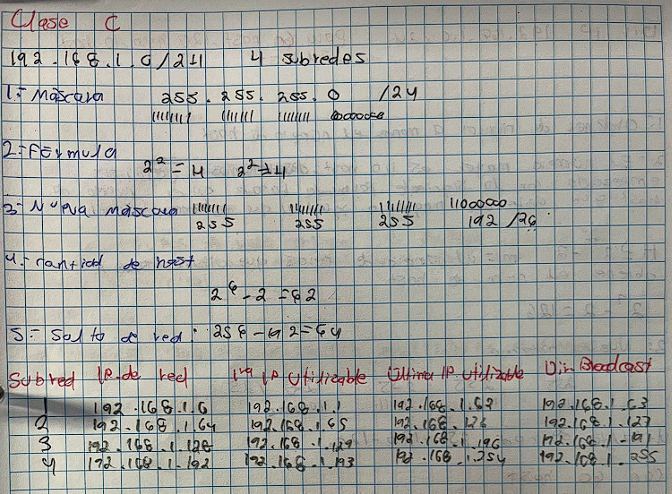 Clase C
192.168.1.0/24 4 subredes
1.- Mascara 255.255.255.0 /24
11111111 11111111 11111111 00000000
2.- Formula
2² = 4 2² = 4
3.- Nueva mascara 11111111 11111111 11111111 11000000
255 255 255 192 /26
4.- cantidad de host
2⁶ - 2 = 62
5.- Salto de red: 256 - 192 = 64
Subred IP de red 1ra IP Utilizable Ultima IP Utilizable Dir. Broadcast
1 192.168.1.0 192.168.1.1 192.168.1.62 192.168.1.63
2 192.168.1.64 192.168.1.65 192.168.126 192.168.1.127
3 192.168.1.128 192.168.1.129 192.168.1.190 192.168.1.191
4 192.168.1.192 192.168.1.193 192.168.1.254 192.168.1.255